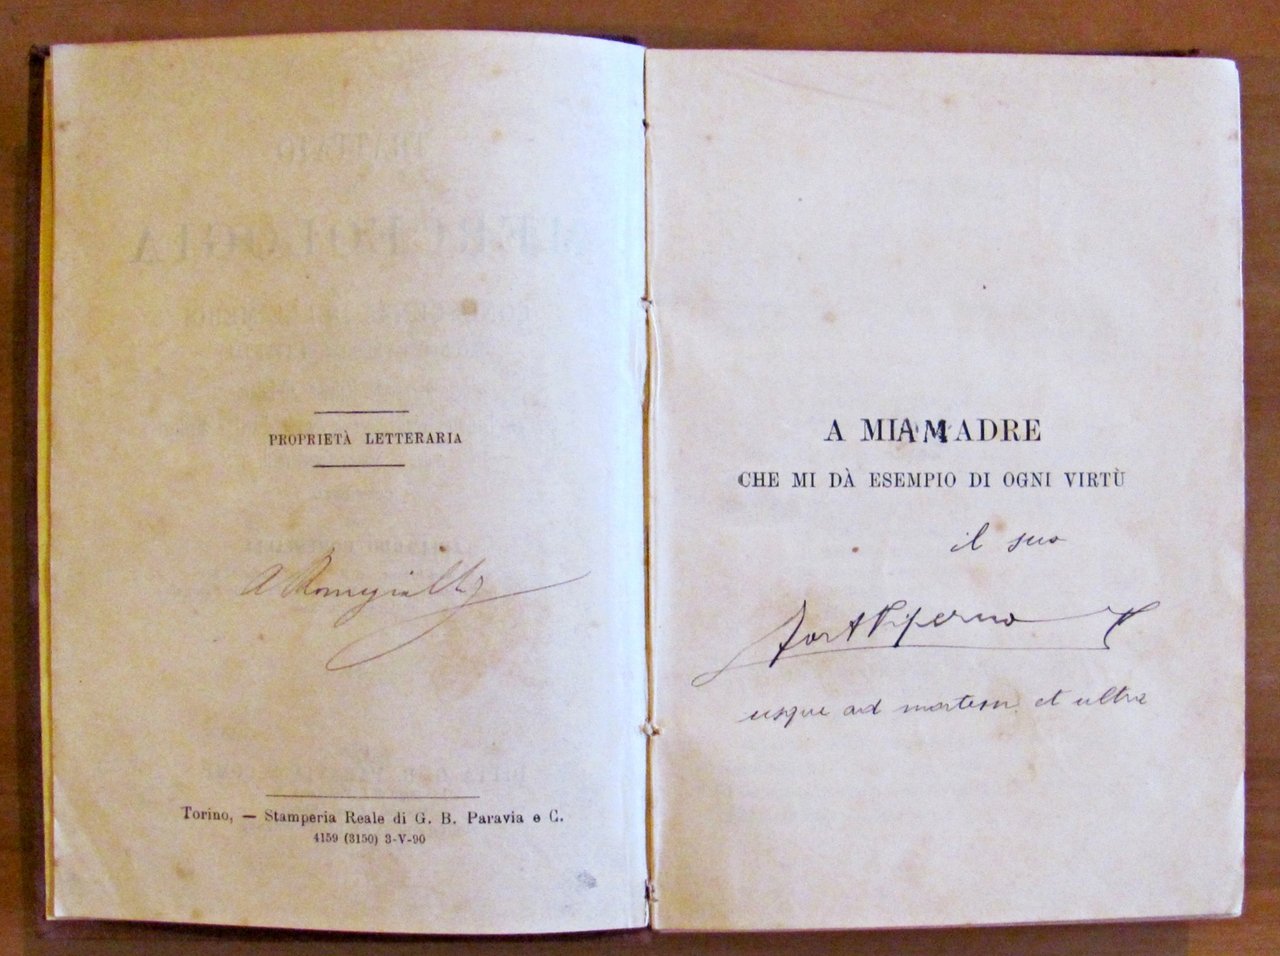 PROPRIETÀ LETTERARIA
Torino, — Stamperia Reale di G. B. Paravia e C.
4159 (3150) 3-V-90
A MIA MADRE
CHE MI DÀ ESEMPIO DI OGNI VIRTÙ
il suo
Piperno
usque ad mortem et ultra